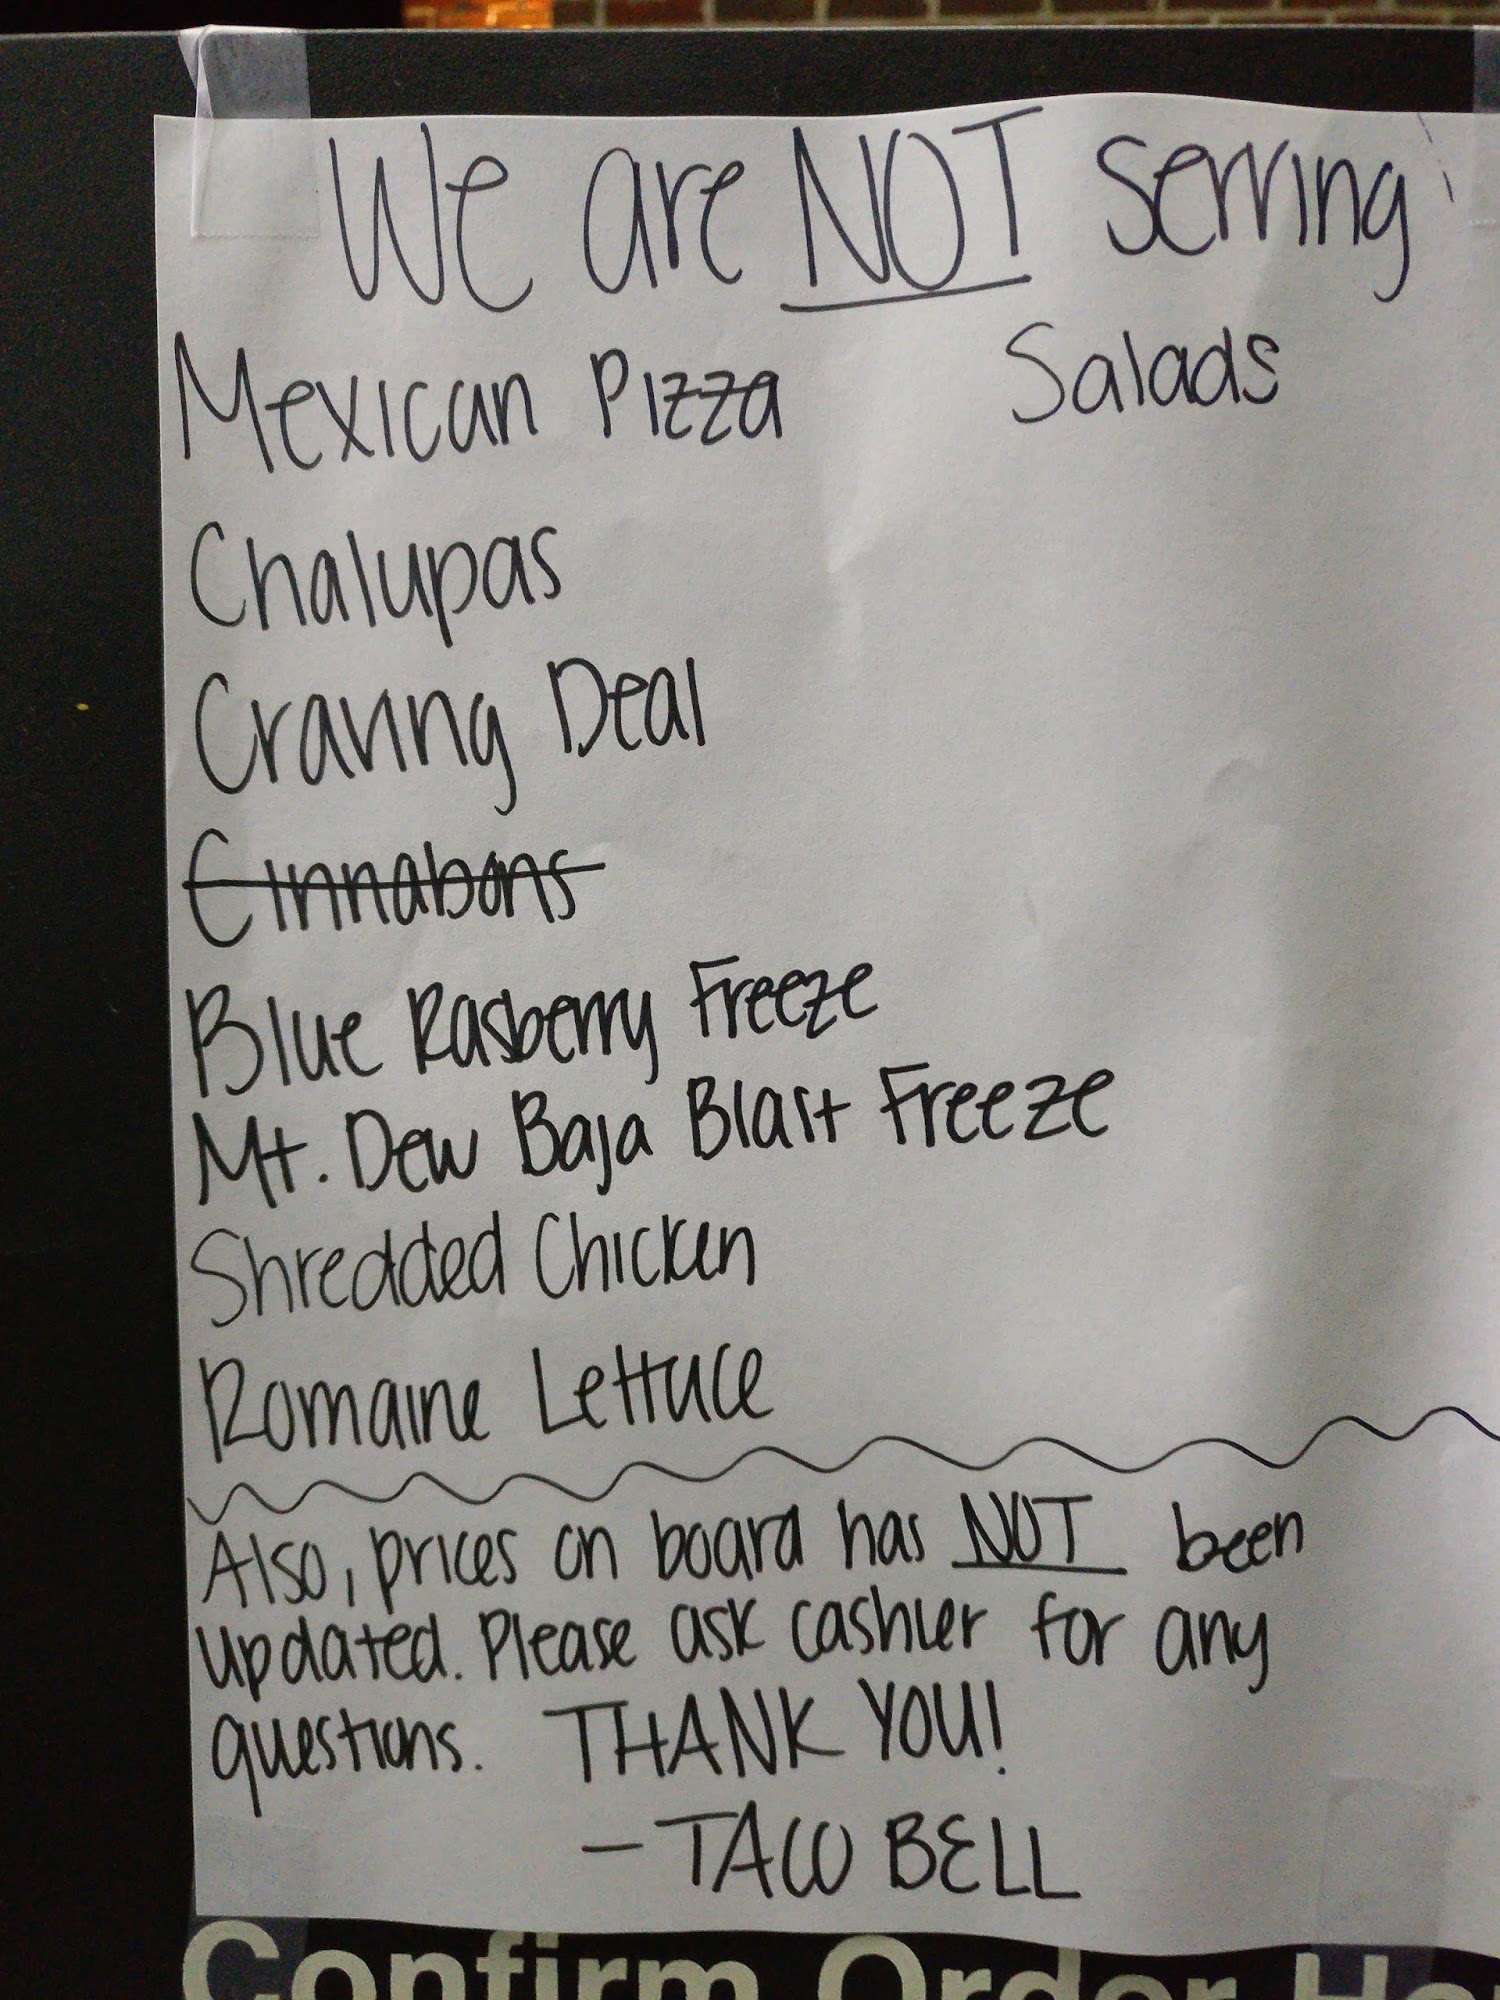 We are NOT serving
Mexican Pizza Salads
Chalupas
Craving Deal
Cinnabons
Blue Rasberry Freeze
Mt. Dew Baja Blast Freeze
Shredded Chicken
Romaine Lettuce
Also, prices on board has NOT been
updated. Please ask cashier for any
questions. THANK YOU!
- TACO BELL
Confirm Order